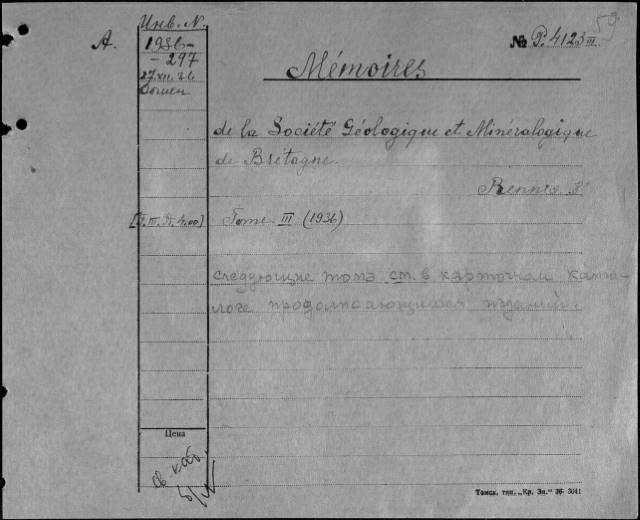 59
Инв. N.
A.
1936-
-297
27.XII.36
№ P. 4123 III
Mémoires
de la Société Géologique et Minéralogique
de Bretagne
Rennes
Tome III (1936)
следующие тома см. в карточном ката-
логе продолжающихся изданий.
Цена
Томск. тип. „Кр. Зн." 36- 3041